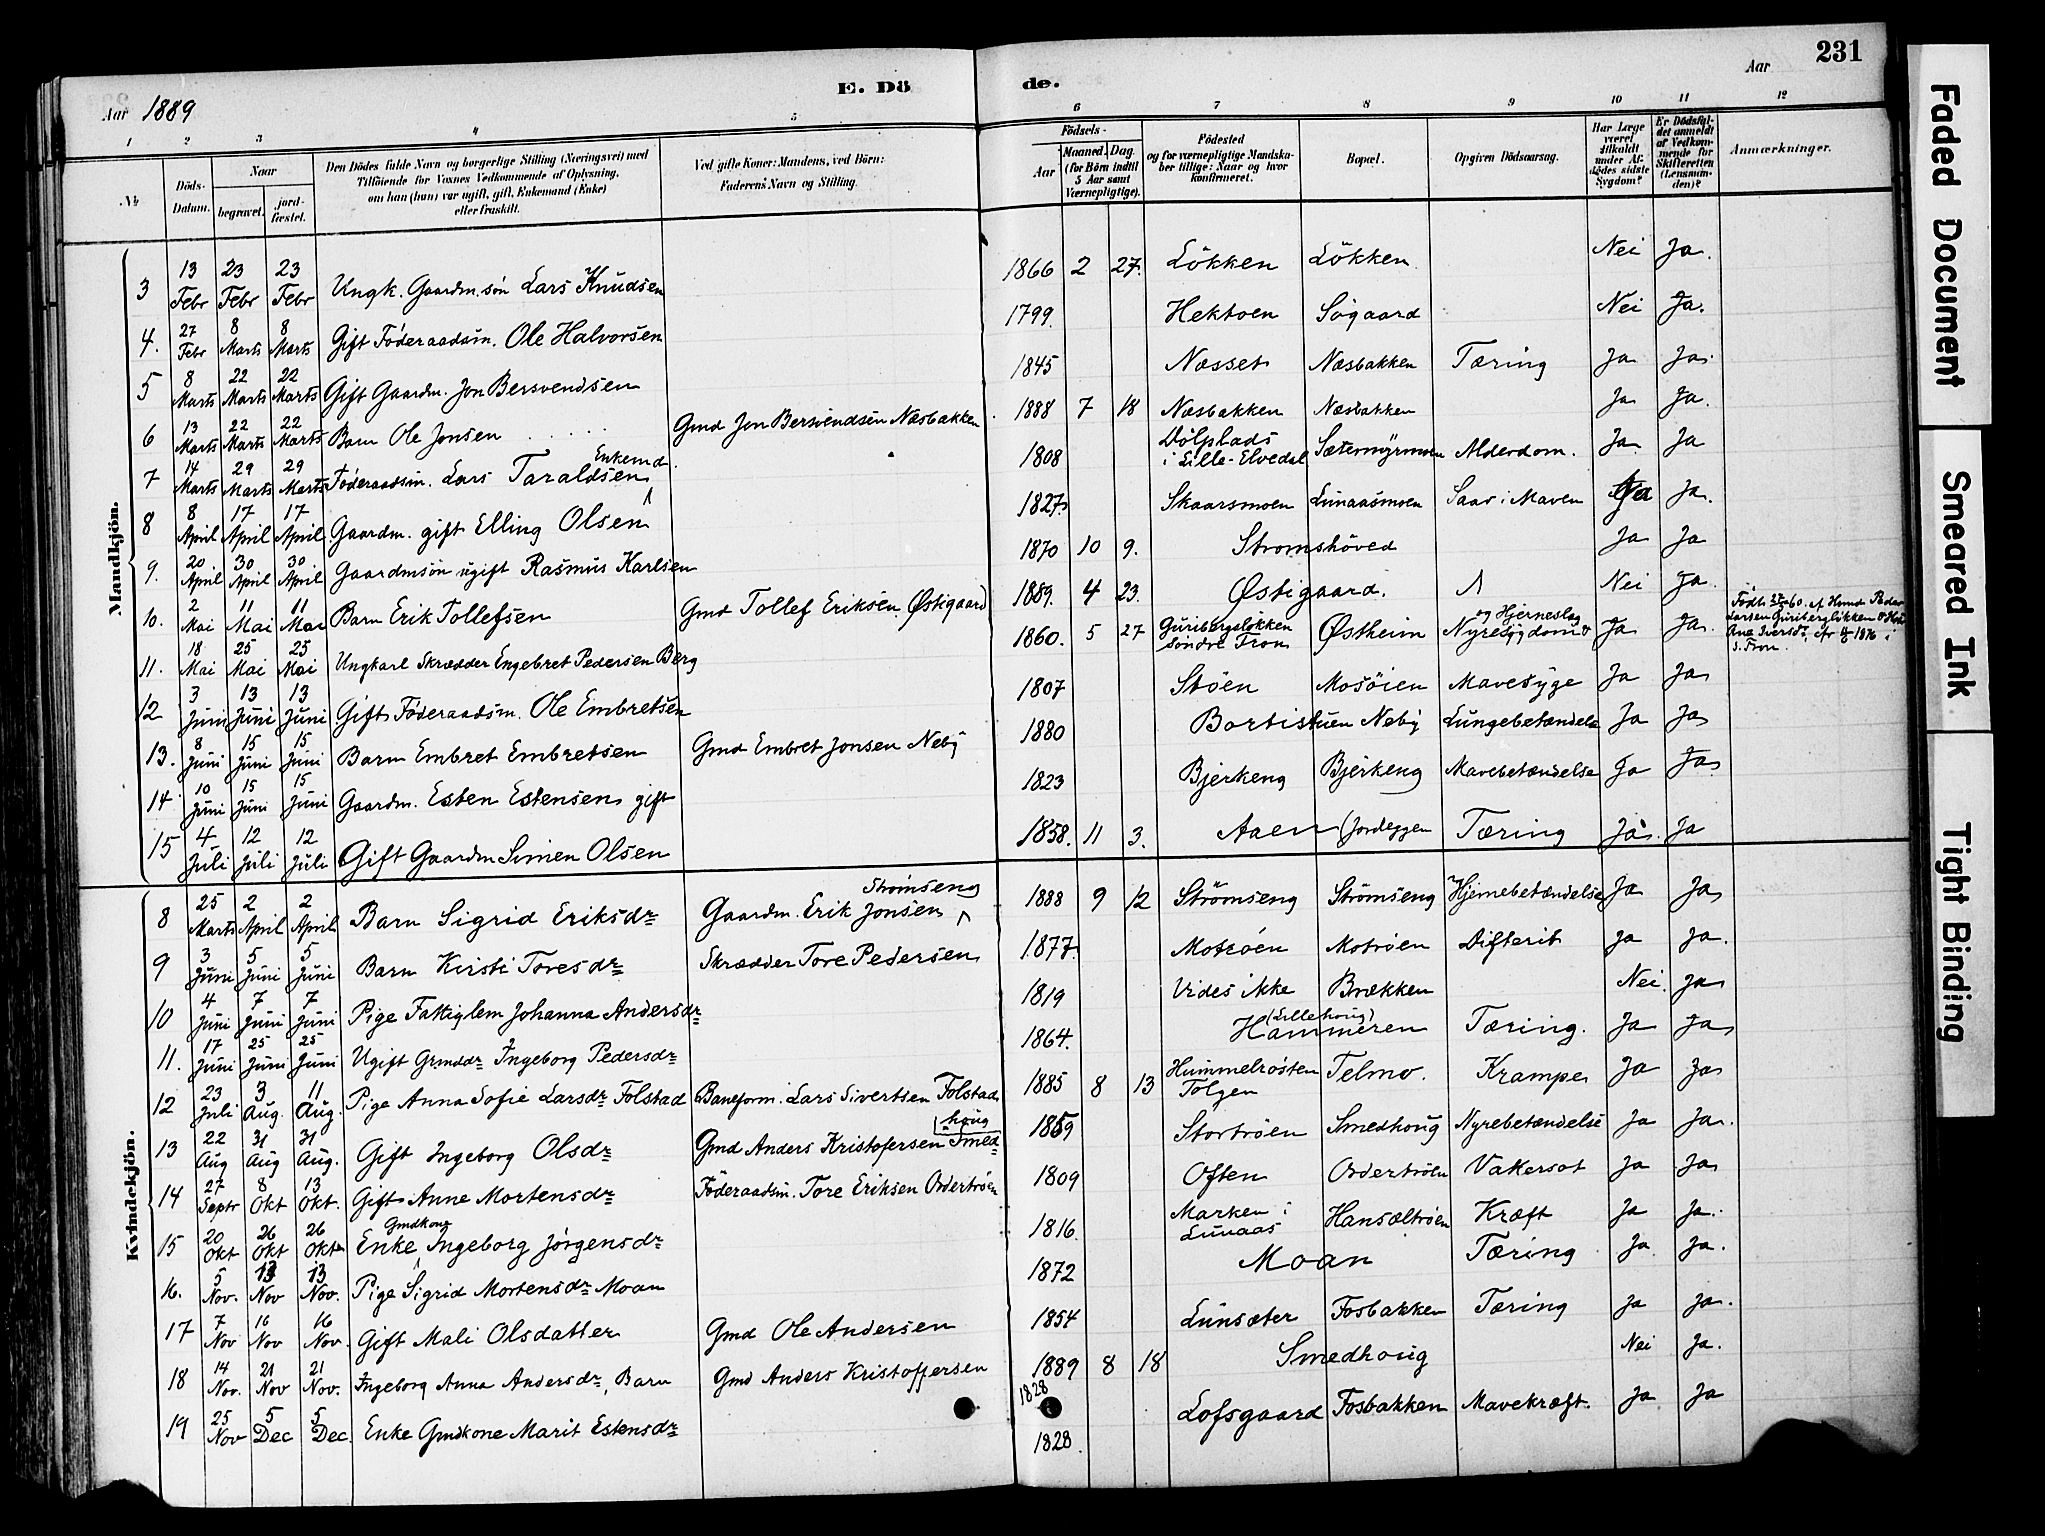 E. Döde.
231
Aar 1889
Aar
1 2 3 4 5 6 7 8 9 10 11 12
No
Döds-Datum.
Naar
begravet.
jord-fæstet.
Den Dödes fulde Navn og borgerlige Stilling (Næringsvei) med
Tilföiende for Voxnes Vedkommende af Oplysning,
om han (hun) var ugift, gift, Enkemand (Enke)
eller fraskilt.
Ved gifte Koner: Mandens, ved Börn:
Faderens Navn og Stilling.
Födsels-
Aar
Maaned. Dag
(for Börn indtil
5 Aar samt
Værnepligtige).
Födested
og for værnepligtige Mandska-
ber tillige: Naar og hvor
konfirmeret.
Bopæl.
Opgiven Dödsaarsag.
Har Læge
været
tilkaldt
under Af-
dödes sidste
Sygdom?
Er Dödsfal-
det anmeldt
af Vedkom-
mende for
Skifteretten
(Lensman-
den)?
Anmærkninger.
Mandkjön.
3 13 Febr 23 Febr 23 Febr Ungk. Gaardm. søn Lars Knudsen 1866 2 27. Løkken Løkken Nei Ja.
4. 27 Febr 8 Marts 8 Marts Gift Føderaadsm. Ole Halvorsen 1799. Hektoen Søgaard Nei Ja.
5 8 Marts 22 Marts 22 Marts Gift Gaardm. Jon Bersvendsen 1845 Næsset Næsbakken Tæring Ja Ja.
6 13 Marts 22 Marts 22 Marts Barn Ole Jonsen Gmd Jon Bersvendsen Næsbakken 1888 7 18 Næsbakken Næsbakken Ja Ja.
7 14 Marts 29 Marts 29 Marts Føderaadsm. Lars Taraldsen Enkemd. 1808 Dølplads i Lille-Elvedal Sætermyrmoen Alderdom. Ja Ja
8 8 April 17 April 17 April Gaardm. gift Elling Olsen 1827. Skaarsmoen Lunaasmoen Saar i Maven Ja Ja.
9. 20 April 30 April 30 April Gaardmsøn ugift Rasmus Karlsen 1870 10 9. Strømshøved Ja Ja
10. 2 Mai 11 Mai 11 Mai Barn Erik Tollefsen Gmd Tollef Eriksen Østigaard 1889. 4 23. Østigaard. Nei Ja.
11. 18 Mai 25 Mai 25 Mai Ungkarl Skrædder Engebret Pedersen Berg 1860. 5 27 Guribergsløkken Søndre Fron Østheim Nyresygdom og Hjerneslag Ja Ja. Larsen Guribergløkken
12 3 Juni 13 Juni 13 Juni Gift Føderaadsm. Ole Embretsen 1807 Støen Mosøien Mavesyge Ja Ja
13. 8 Juni 15 Juni 15 Juni Barn Embret Embretsen Gmd Embret Jonsen Neby 1880 Bortistuen Neby Lungebetændelse Ja Ja
14 10 Juni 15 Juni 15 Juni Gaardm. Esten Estensen gift 1823 Bjerkeng Bjerkeng Mavebetændelse Ja Ja
15 4 Juli 12 Juli 12 Juli Gift Gaardm Simen Olsen 1858. 11 3. Aaen (Jordeggen Tæring Ja. Ja
Kvindekjön.
8 25 Marts 2 April 2 April Barn Sigrid Eriksdr Gaardm. Erik Jonsen Strømseng 1888 9 12 Strømseng Strømseng Hjernebetændelse Ja Ja
9 3 Juni 5 Juni 5 Juni Barn Kirsti Toresdr Skrædder Tore Pedersen 1877. Motrøen Motrøen Difterit Ja Ja.
10 4 Juni 7 Juni 7 Juni Pige Fattiglem Johanna Andersdr 1819 Vides ikke Brækken Nei. Ja
11. 17 Juni 25 Juni 25 Juni Ugift Grmddr Ingeborg Pedersdr 1864. Hammeren (Lillehoug) Tæring. Ja Ja
12 23 Juli 3 Aug. 11 Aug. Pige Anna Sofie Larsdr Folstad Baneform. Lars Sivertsen Folstad 1885 8 13 Hummelrøsten Tolgen Telmo. Krampe Ja Ja
13 22 Aug 31 Aug 31 Aug. Gift Ingeborg Olsdr Gmd Anders Kristofersen Smedhoug 1859 Stortrøen Smedhoug Nyrebetændelse Ja Ja.
14 27 Septr 8 Okt 13 Okt. Gift Anne Mortensdr Føderaadsm. Tore Eriksen Ordertrøen 1809 Often Ordertrøen Vatersot Ja Ja
15 20 Okt 26 Okt 26 Okt Enke Gmdkone Ingeborg Jørgensdr 1816. Marken i Lunaas Hansæltrøen Kræft Ja Ja.
16. 5 Nov. 13 Nov 13 Nov. Pige Sigrid Mortensdr Moan 1872 Moan Tæring Ja Ja.
17 7 Nov 16 Nov 16 Nov. Gift Mali Olsdatter Gmd Ole Andersen 1854 Lunsæter Fosbakken Tæring Ja Ja.
18 14 Nov. 21 Nov 21 Nov. Ingeborg Anna Andersdr, Barn Gmd Anders Kristoffersen 1889 8 18 Smedhoug Nei Ja.
19 25 Nov 5 Dec 5 Dec. Enke Gmdkone Marit Estensdr 1828 1828. Lofsgaard Fosbakken Mavekræft. Ja Ja
Faded Document
Smeared Ink
Tight Binding